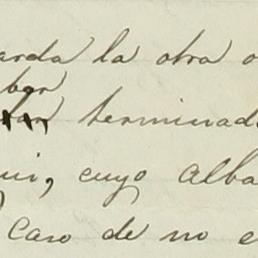 arda la otra o
ber
terminad
ui, cuyo alba
caso de no e